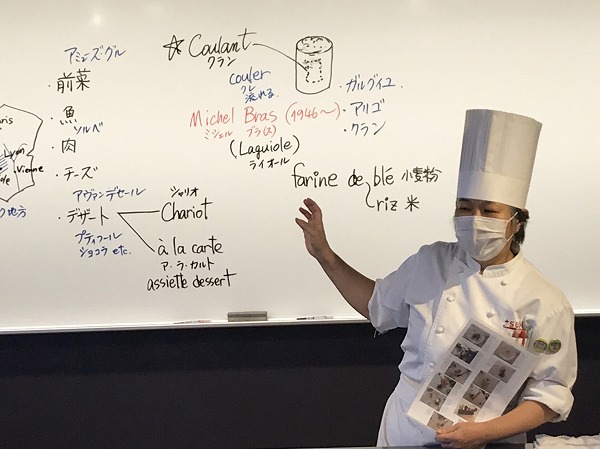 アミューズ・グル
・前菜
・魚
ソルベ
・肉
・チーズ
アヴァンデセール
・デザート
プティフール
ショコラ etc.
シャリオ
Chariot
à la carte
ア・ラ・カルト
assiette dessert
☆ Coulant
クラン
couler
クレ
流れる。
Michel Bras (1946~)
ミシェル ブラ(ス)
(Laguiole)
ライオール
・ガルグイユ
・アリゴ
・クラン
farine de blé 小麦粉
riz 米
Lyon
Vienne